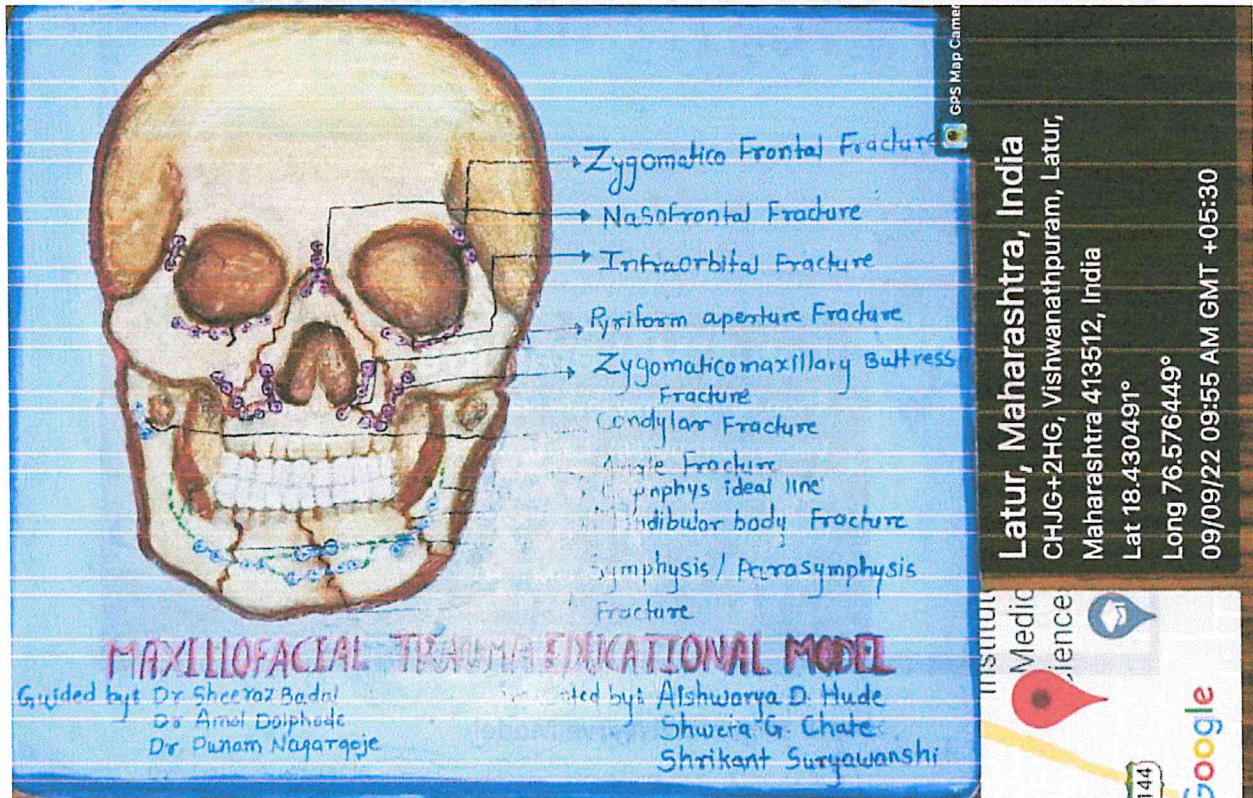 Zygomatico Frontal Fracture
Nasofrontal Fracture
Infraorbital Fracture
Pyriform aperture Fracture
Zygomaticomaxillary Buttress
Fracture
Condylar Fracture
Fracture
ideal line
body Fracture
Symphysis / Parasymphysis
Fracture
MAXILLOFACIAL TRAUMA EDUCATIONAL MODEL
Guided by: Dr Sheeraz Badal
Dr Amol Doiphode
Dr. Punam Nagargoje
by: Aishwarya D. Hude
Shweta G. Chate
Shrikant Suryawanshi
GPS Map Camer
Latur, Maharashtra, India
CHJG+2HG, Vishwanathpuram, Latur,
Maharashtra 413512, India
Lat 18.430491°
Long 76.576449°
09/09/22 09:55 AM GMT +05:30
Medic
ience
144
Google